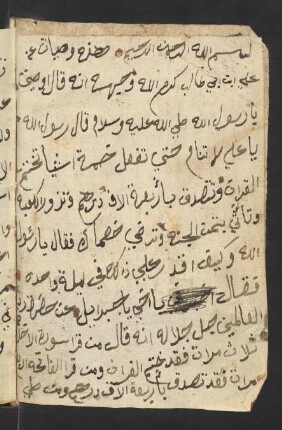 بسم الله الرحمن الرحيم هذه وصيات عن
علي ابن ابي طالب كرم الله وجهه انه قال وصني
يا رسول الله صلي الله عليه وسلم قال رسول الله
يا علي لا تنام حتي تفعل خمسة اشيا تختم
القران وتتصدق باربعة الاف درهم وتزور الكعبة
وتأتي بثمن الجنة وترضي خصماك فقال يا رسول
الله وكيف اقدر علي ذلك في ليلة واحدة
فقال يا اخي يا جبرايل عن
العالمين جل جلاله انه قال من قرا سورة الاخلاص
ثلاث مرات فقد ختم القران ومن قرا الفاتحة
مرات فقد تصدق باربعة الاف درهم ومن صلي